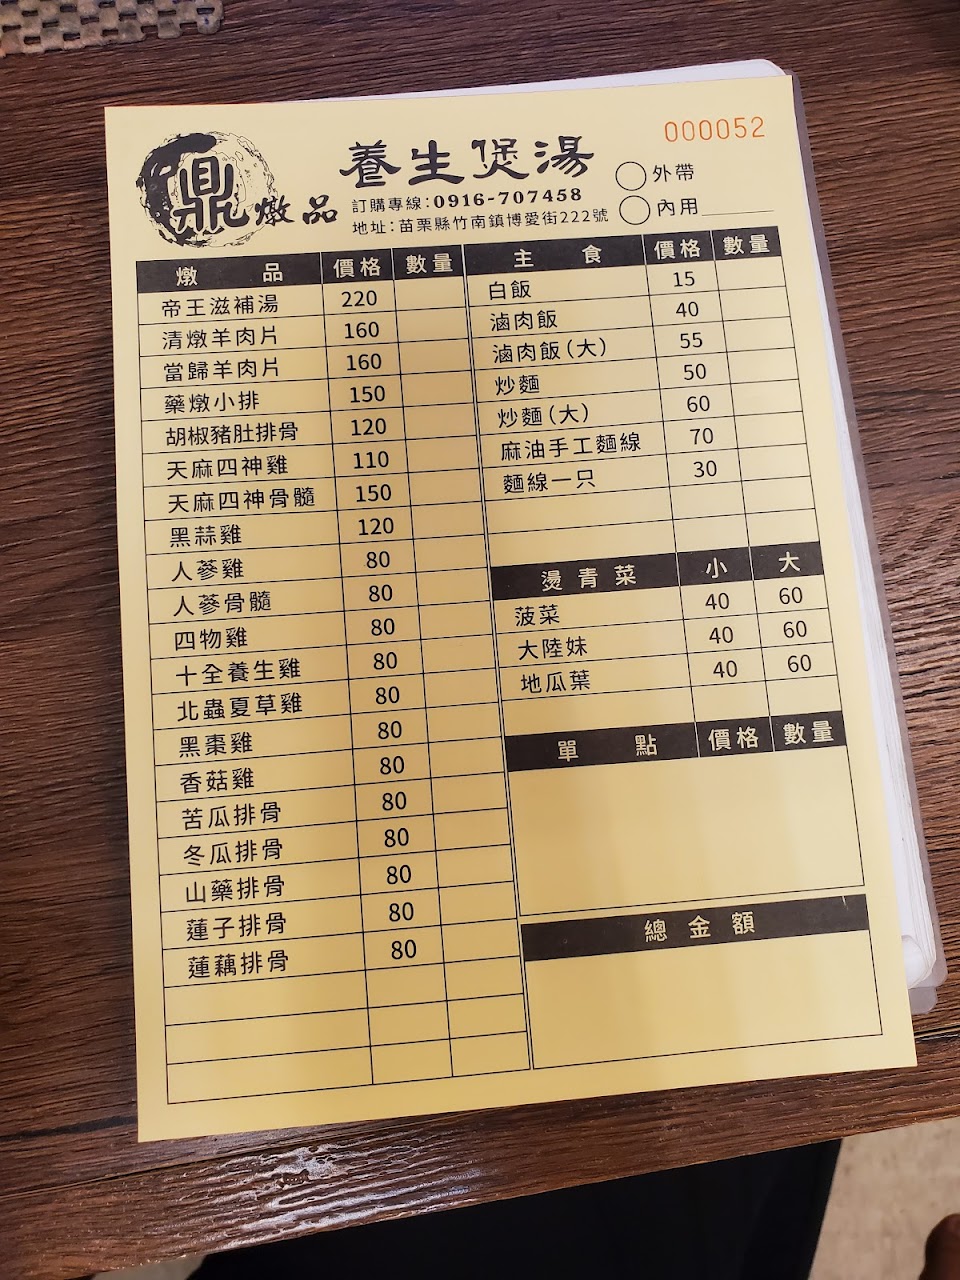 000052
鼎燉品
養生煲湯
訂購專線:0916-707458
地址:苗栗縣竹南鎮博愛街222號
外帶
內用
燉品 價格 數量
帝王滋補湯 220
清燉羊肉片 160
當歸羊肉片 160
藥燉小排 150
胡椒豬肚排骨 120
天麻四神雞 110
天麻四神骨髓 150
黑蒜雞 120
人蔘雞 80
人蔘骨髓 80
四物雞 80
十全養生雞 80
北蟲夏草雞 80
黑棗雞 80
香菇雞 80
苦瓜排骨 80
冬瓜排骨 80
山藥排骨 80
蓮子排骨 80
蓮藕排骨 80
主食 價格 數量
白飯 15
滷肉飯 40
滷肉飯(大) 55
炒麵 50
炒麵(大) 60
麻油手工麵線 70
麵線一只 30
燙青菜 小 大
菠菜 40 60
大陸妹 40 60
地瓜葉 40 60
單點 價格 數量
總金額